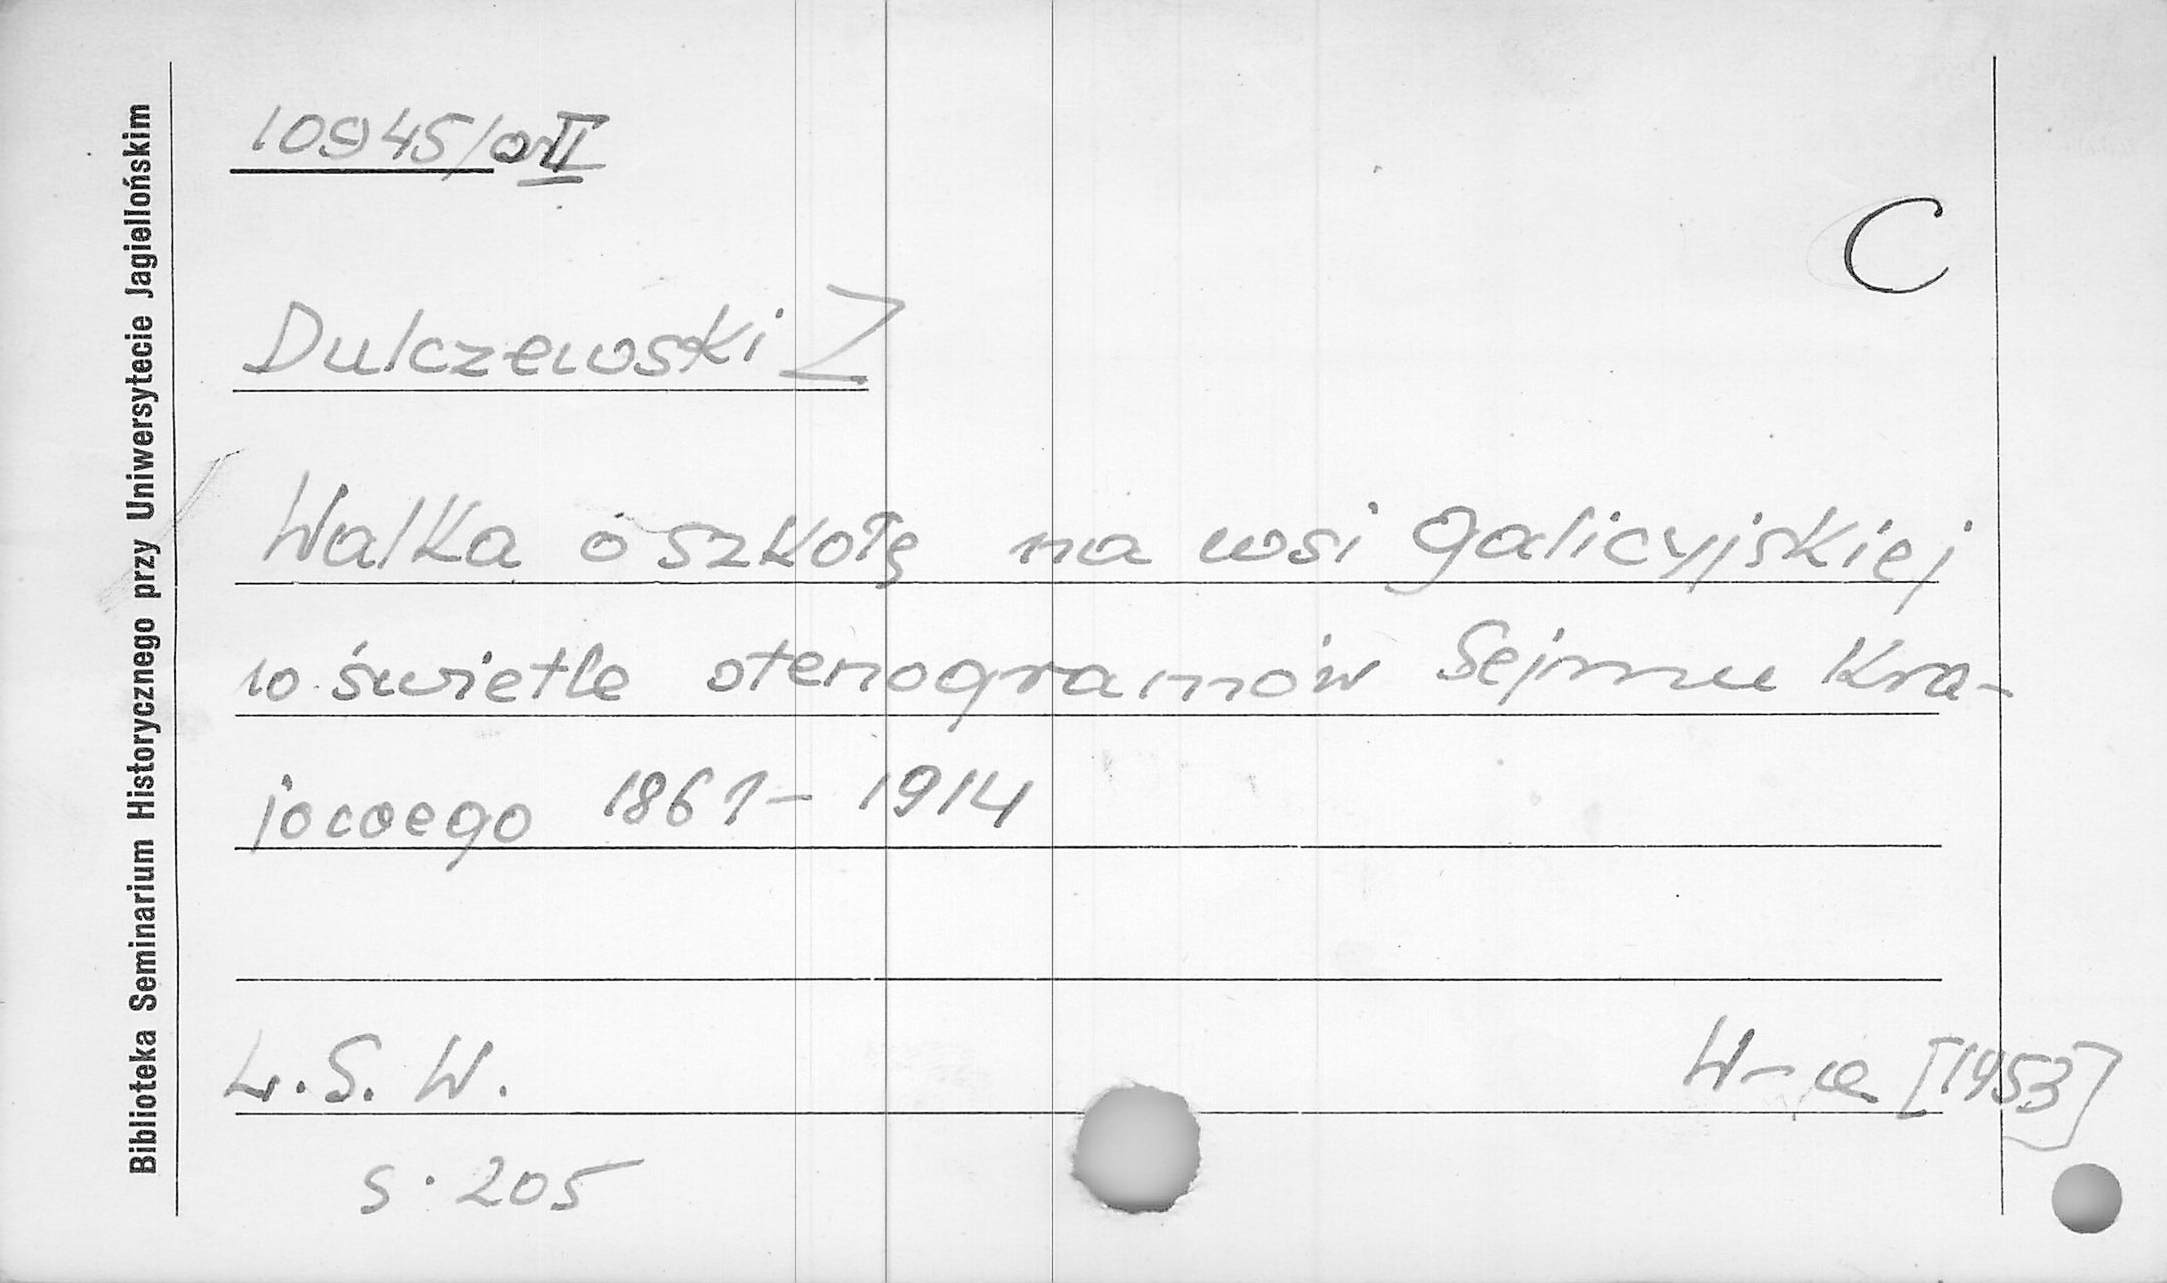 10945/arII
C
Dulczewski Z
Walka o szkołę na wsi galicyjskiej
w świetle stenogramów Sejmu Kra-
jowego 1861-1914
L.S.W.
W-wa [1953]
s. 205
Biblioteka Seminarium Historycznego przy Uniwersytecie Jagiellońskim